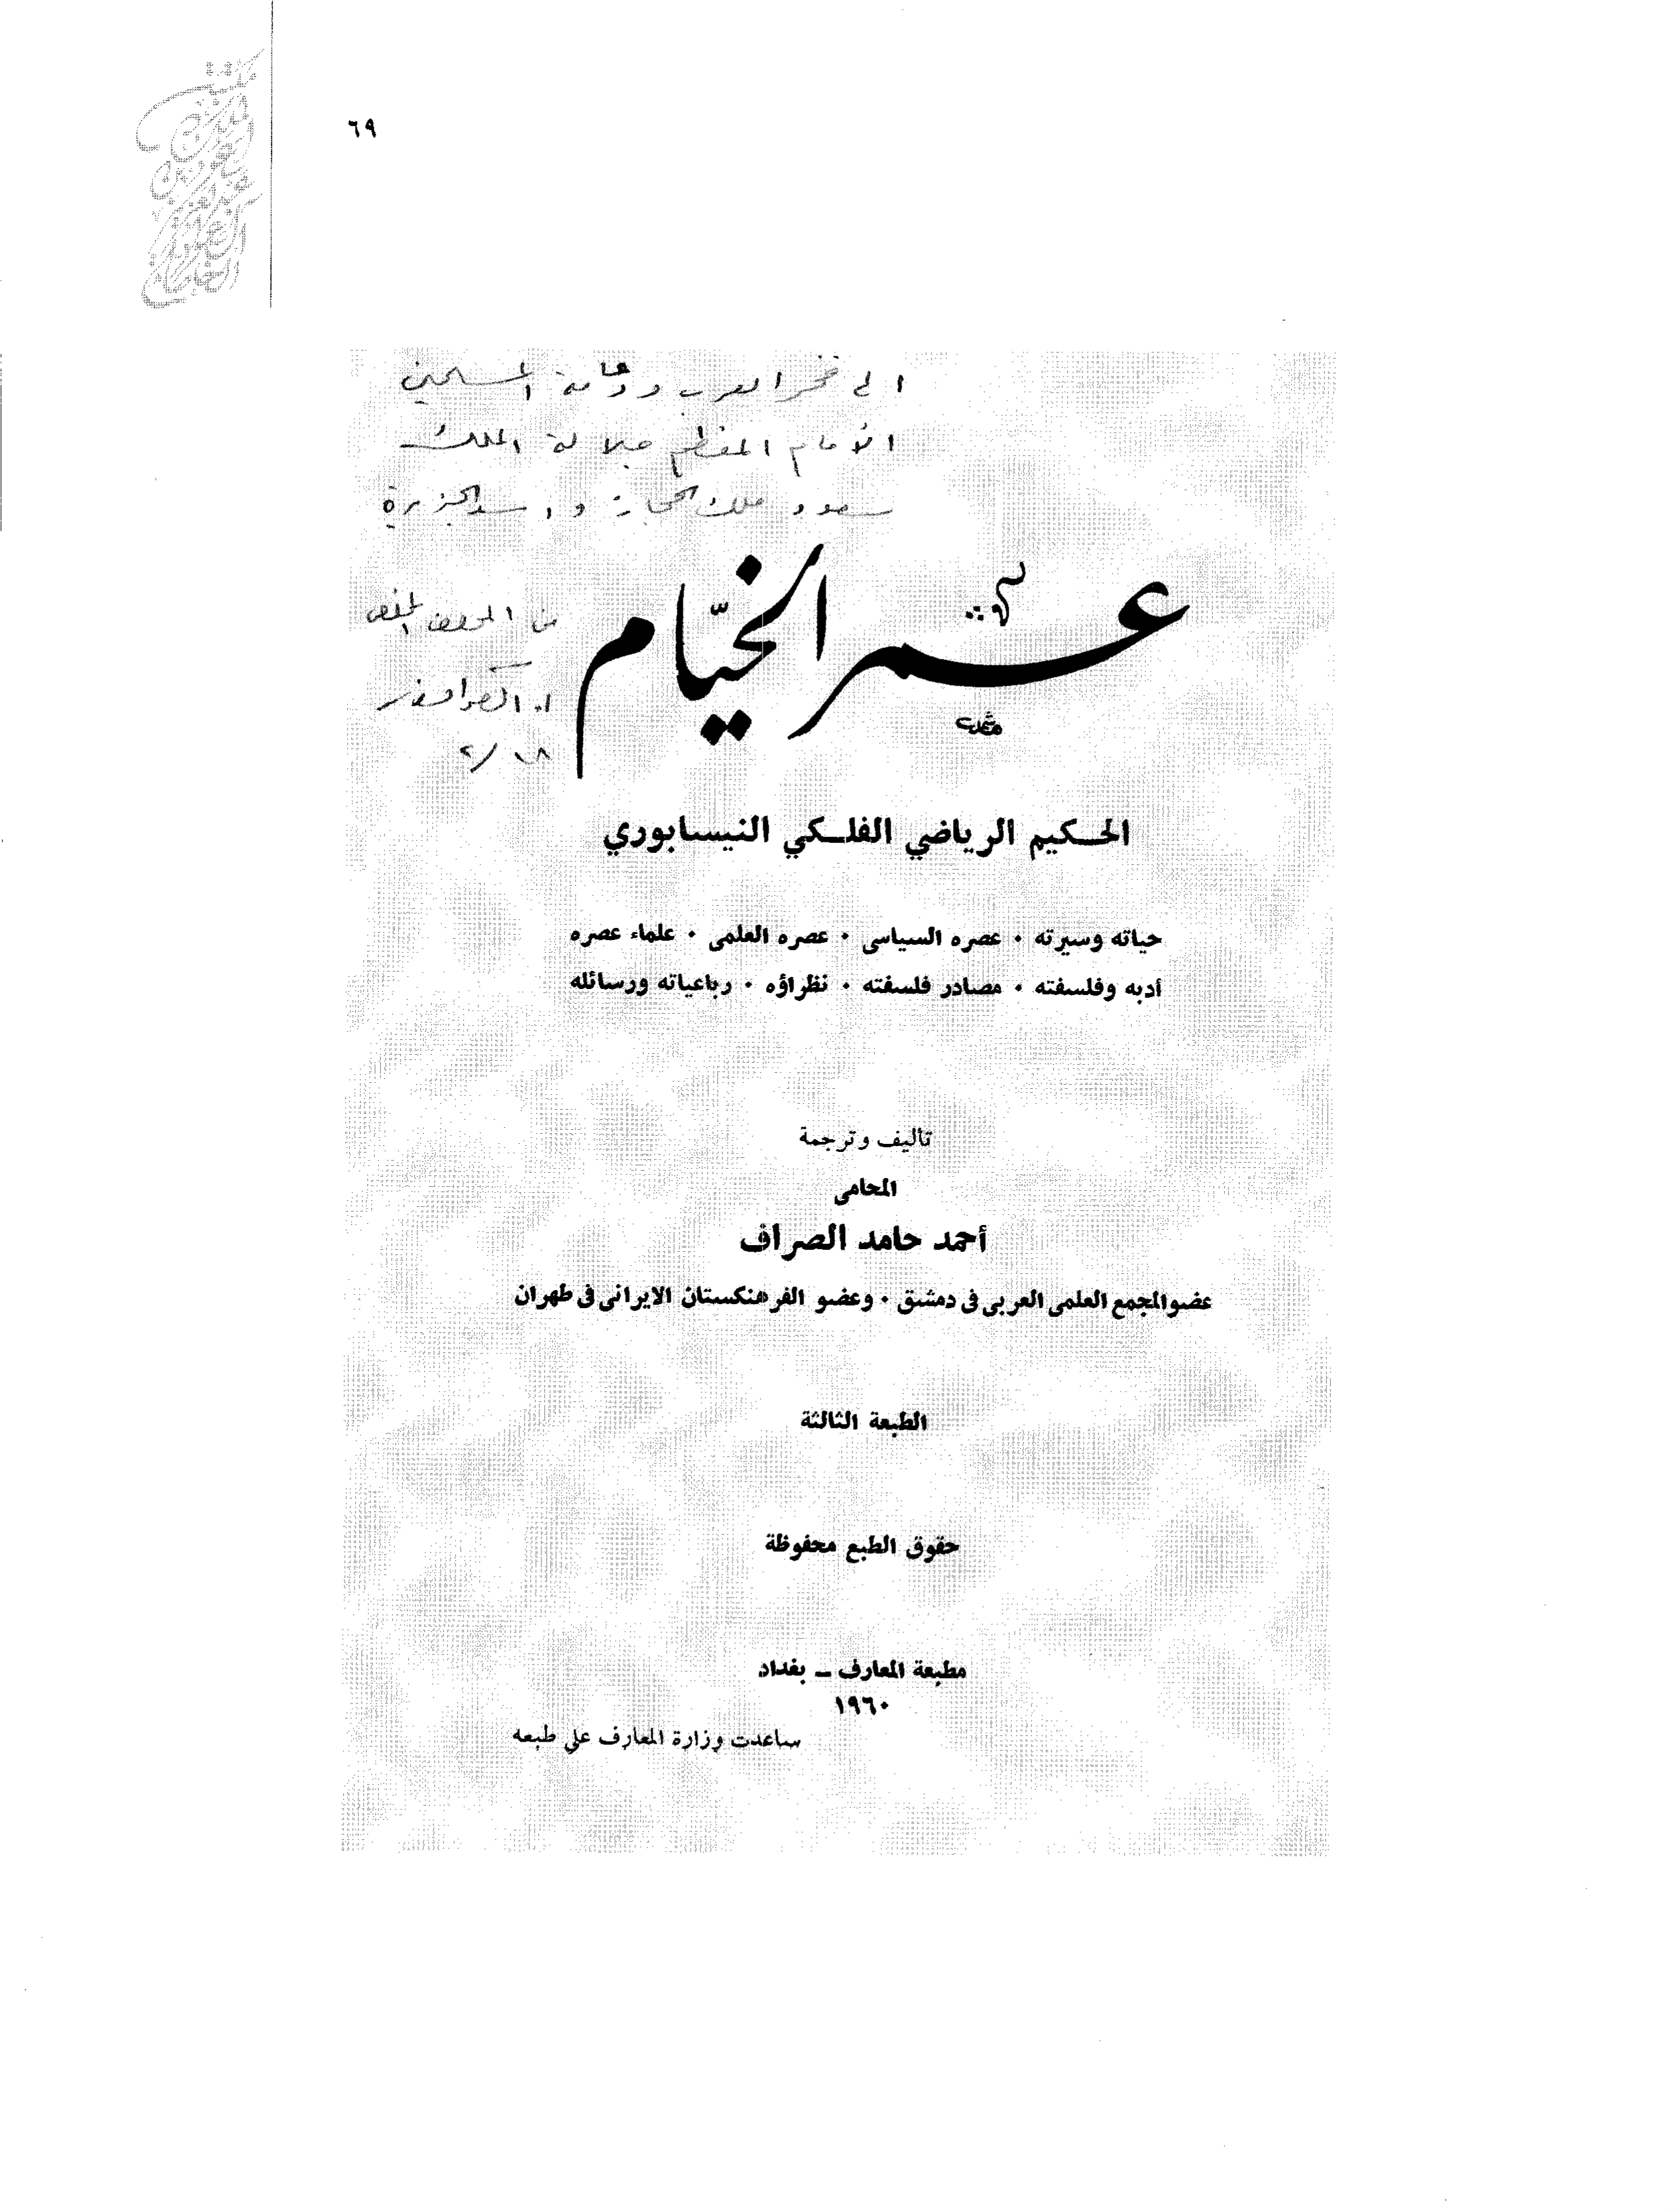 ٦٩
الى فخر العرب ودعامة المسلمين
الامام المعظم جلالة الملك
سعود ملك الحجاز واسد الجزيرة
عمر الخيّام
من المخلص
الحكيم الرياضي الفلكي النيسابوري
حياته وسيرته ٠ عصره السياسى ٠ عصره العلمى ٠ علماء عصره
أدبه وفلسفته ٠ مصادر فلسفته ٠ نظراؤه ٠ رباعياته ورسائله
تأليف وترجمة
المحامى
أحمد حامد الصراف
عضو المجمع العلمى العربى فى دمشق ٠ وعضو الفرهنكستان الايرانى فى طهران
الطبعة الثالثة
حقوق الطبع محفوظة
مطبعة المعارف – بغداد
١٩٦٠
ساعدت وزارة المعارف على طبعه